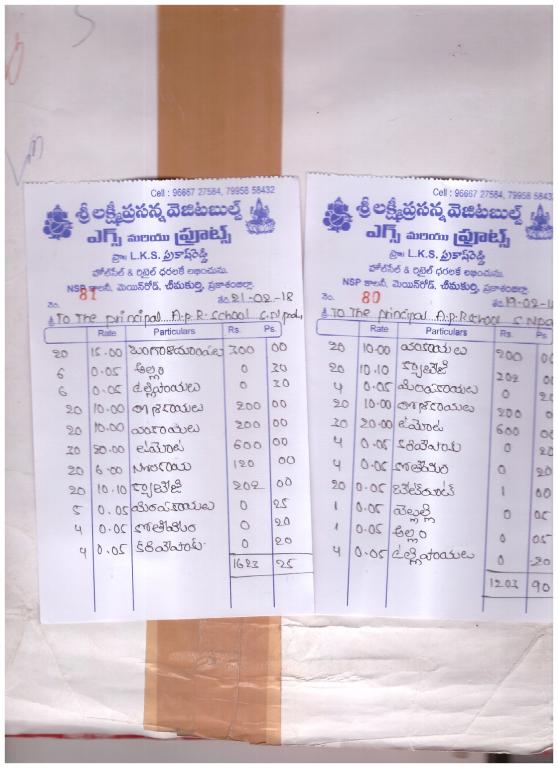 Cell : 96667 27584, 79958 58432
శ్రీ లక్ష్మీప్రసన్న వెజిటబుల్స్
ఎగ్స్ మరియు ఫ్రూట్స్
ప్రొ॥ L.K.S. ప్రకాష్‌రెడ్డి
హోల్‌సేల్ & రిటైల్ ధరలకే లభించును.
NSP కాలనీ, మెయిన్‌రోడ్, చీమకుర్తి, ప్రకాశంజిల్లా.
నెం. 81 తేది. 21-02-18
శ్రీ To The principal... A.P.R. School
Rate Particulars Rs. Ps.
20 15.00 300 00
6 0.05 అల్లం 0 30
6 0.05 ఉల్లిపాయలు 0 30
20 10.00 200 00
20 10.00 వంకాయలు 200 00
30 20.00 టమోట 600 00
20 6.00 120 00
20 10.10 క్యారెట్ 202 00
5 0.05 0 25
4 0.05 కొతిమీరం 0 20
4 0.05 కరివేపాకు 0 20
1623 25
Cell : 96667 27584, 79958 58432
శ్రీ లక్ష్మీప్రసన్న వెజిటబుల్స్
ఎగ్స్ మరియు ఫ్రూట్స్
ప్రొ॥ L.K.S. ప్రకాష్‌రెడ్డి
హోల్‌సేల్ & రిటైల్ ధరలకే లభించును.
NSP కాలనీ, మెయిన్‌రోడ్, చీమకుర్తి, ప్రకాశంజిల్లా.
నెం. 80 తేది. 19-02-18
శ్రీ To The principal... A.P.R School
Rate Particulars Rs. Ps.
20 10.00 వంకాయలు 200 00
20 10.10 క్యారెట్ 202 00
4 0.05 0 20
20 10.00 200 00
30 20.00 టమోట 600 00
4 0.05 కరివేపాకు 0 20
4 0.05 కొతిమీరం 0 20
20 0.05 బీట్‌రూట్ 1 00
1 0.05 వెల్లుల్లి 0 05
1 0.05 అల్లం 0 05
4 0.05 ఉల్లిపాయలు 0 20
1203 90